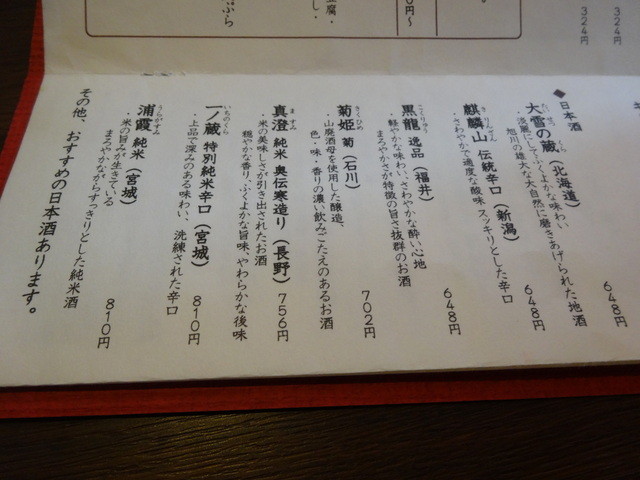 324円
324円
0円～
豆腐・
し・
ぷら
◆日本酒
たいせつ　くら
大雪の蔵（北海道）　648円
・淡麗にしてふくよかな味わい
旭川の雄大な大自然に磨きあげられた地酒
きりんざん
麒麟山 伝統辛口（新潟）　648円
・さわやかで適度な酸味 スッキリとした辛口
こくりゅう
黒龍 逸品（福井）　648円
・軽やかな味わい、さわやかな酔い心地
まろやかさが特徴の旨さ抜群のお酒
きくひめ
菊姫 菊（石川）　702円
・山廃酒母を使用した醸造、
色・味・香りの濃い飲みごたえのあるお酒
ますみ
真澄 純米 奥伝寒造り（長野）　756円
・米の美味しさが引き出されたお酒
穏やかな香り、ふくよかな旨味、やわらかな後味
いちのくら
一ノ蔵 特別純米辛口（宮城）　810円
・上品で深みのある味わい、洗練された辛口
うらがすみ
浦霞 純米（宮城）　810円
・米の旨みが生きている
まろやかながらすっきりとした純米酒
その他、おすすめの日本酒あります。